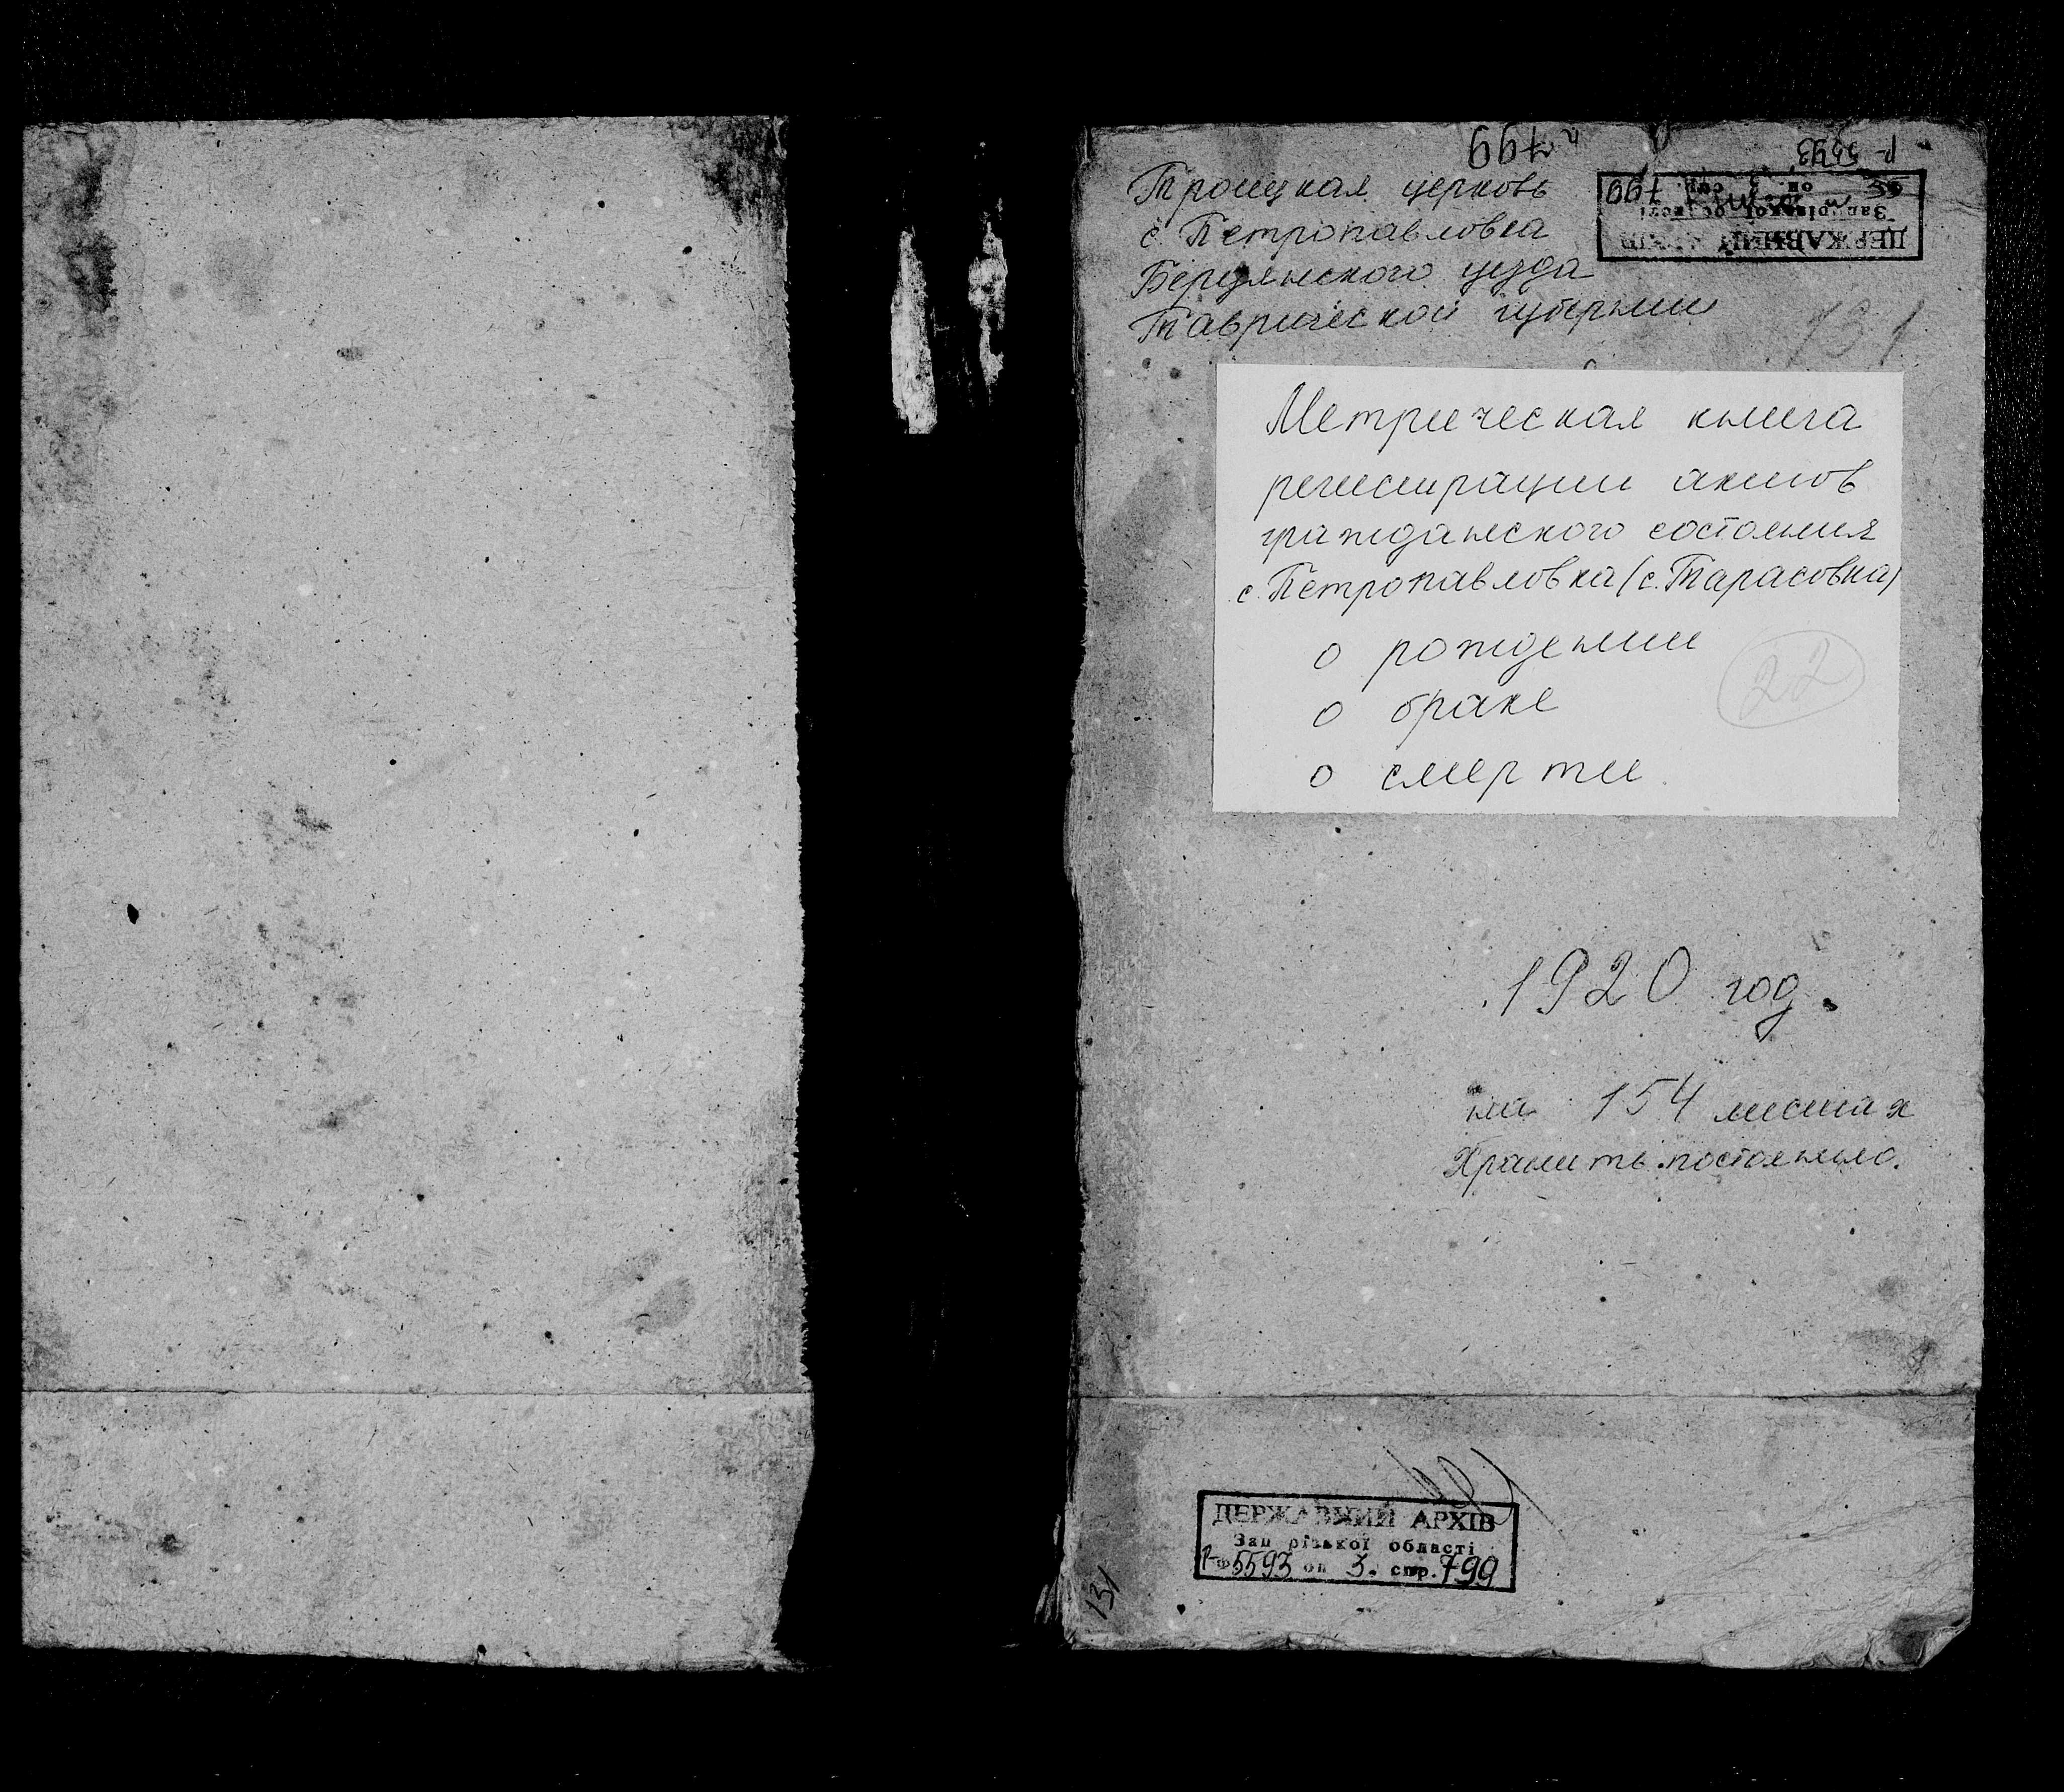 799
Р-5593
Троицкая церковь
с. Петропавловка
Бердянского уезда
Таврической губернии
ДЕРЖАВНИЙ АРХІВ
Запорізької області
оп. 3 спр. 799
131
Метрическая книга
регистрации актов
гражданского состояния
с. Петропавловка (с. Тарасовка)
о рождении
о браке
о смерти
22
1920 год.
на 154 листах
Хранить постоянно.
ДЕРЖАВНИЙ АРХІВ
Зап різької області
Р-ф 5593 оп 3. спр. 799
131